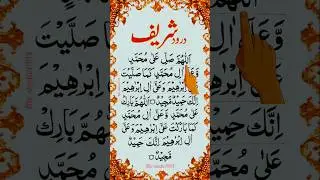 درود شریف
اَللّٰهُمَّ صَلِّ عَلٰى مُحَمَّدٍ
وَّعَلٰٓى اٰلِ مُحَمَّدٍ كَمَا صَلَّيْتَ
اِبْرٰهِيْمَ وَعَلٰٓى اٰلِ اِبْرٰهِيْمَ
اِنَّكَ حَمِيْدٌ مَّجِيْدٌ اَللّٰهُمَّ بَارِكْ
عَلٰى مُحَمَّدٍ وَّعَلٰٓى اٰلِ مُحَمَّدٍ
كَمَا بَارَكْتَ عَلٰٓى اِبْرٰهِيْمَ وَعَلٰٓى
اٰلِ اِبْرٰهِيْمَ اِنَّكَ حَمِيْدٌ
مَّجِيْدٌ